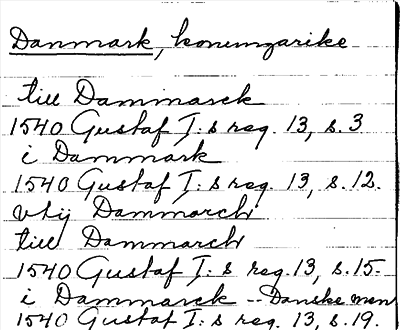 Danmark, konungarike
till Dammarck
1540 Gustaf I:s reg. 13, s. 3
i Dammark
1540 Gustaf I:s reg. 13, s. 12.
vtij Dammarch
till Dammarch
1540 Gustaf I:s reg. 13, s. 15.
i Dammarck -- Danske men
1540 Gustaf I:s reg. 13, s. 19.